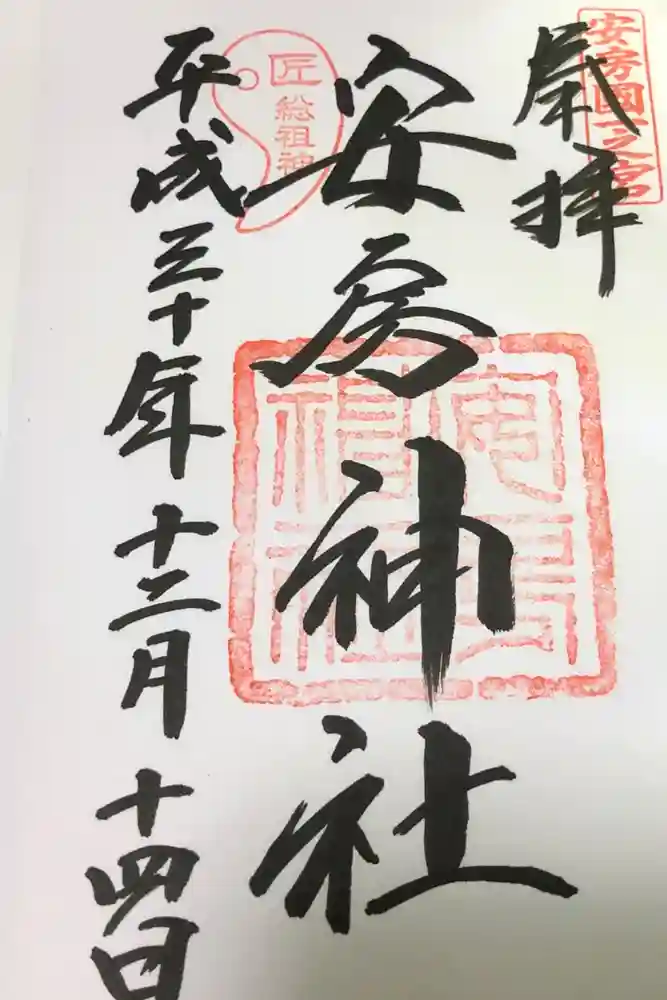 安房國一之宮
奉拝
安房神社
安房神社
匠
総祖神
平成三十年十二月十四日